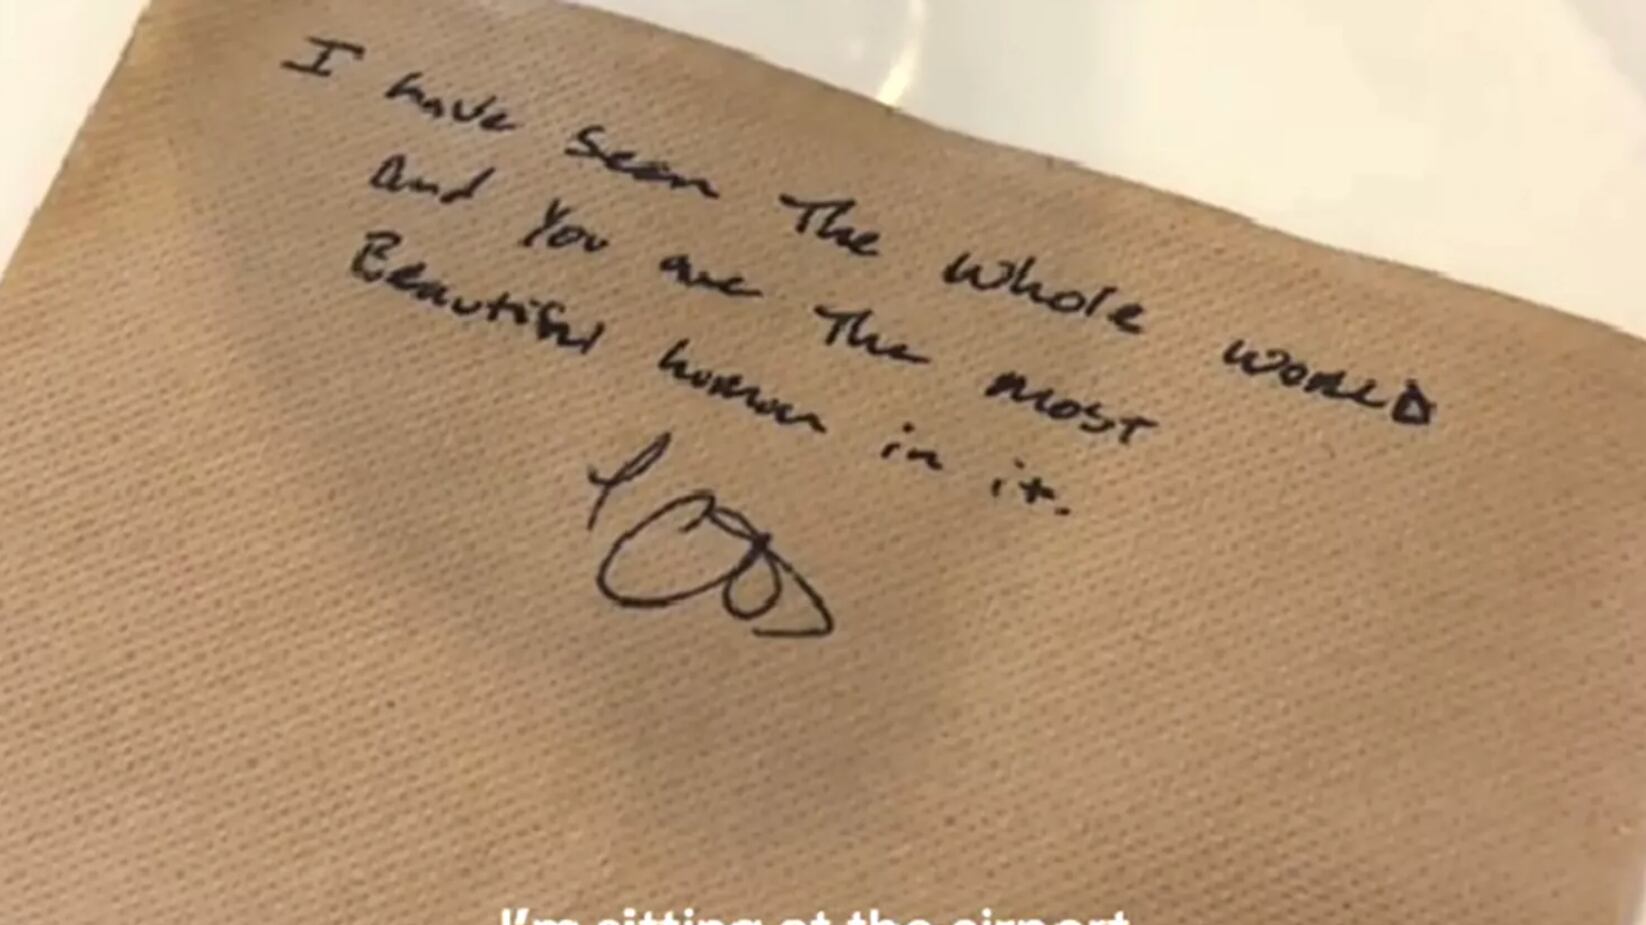 I have seen The Whole WORLD
And You are The most
Beautiful human in it.
I'm sitting at the airport